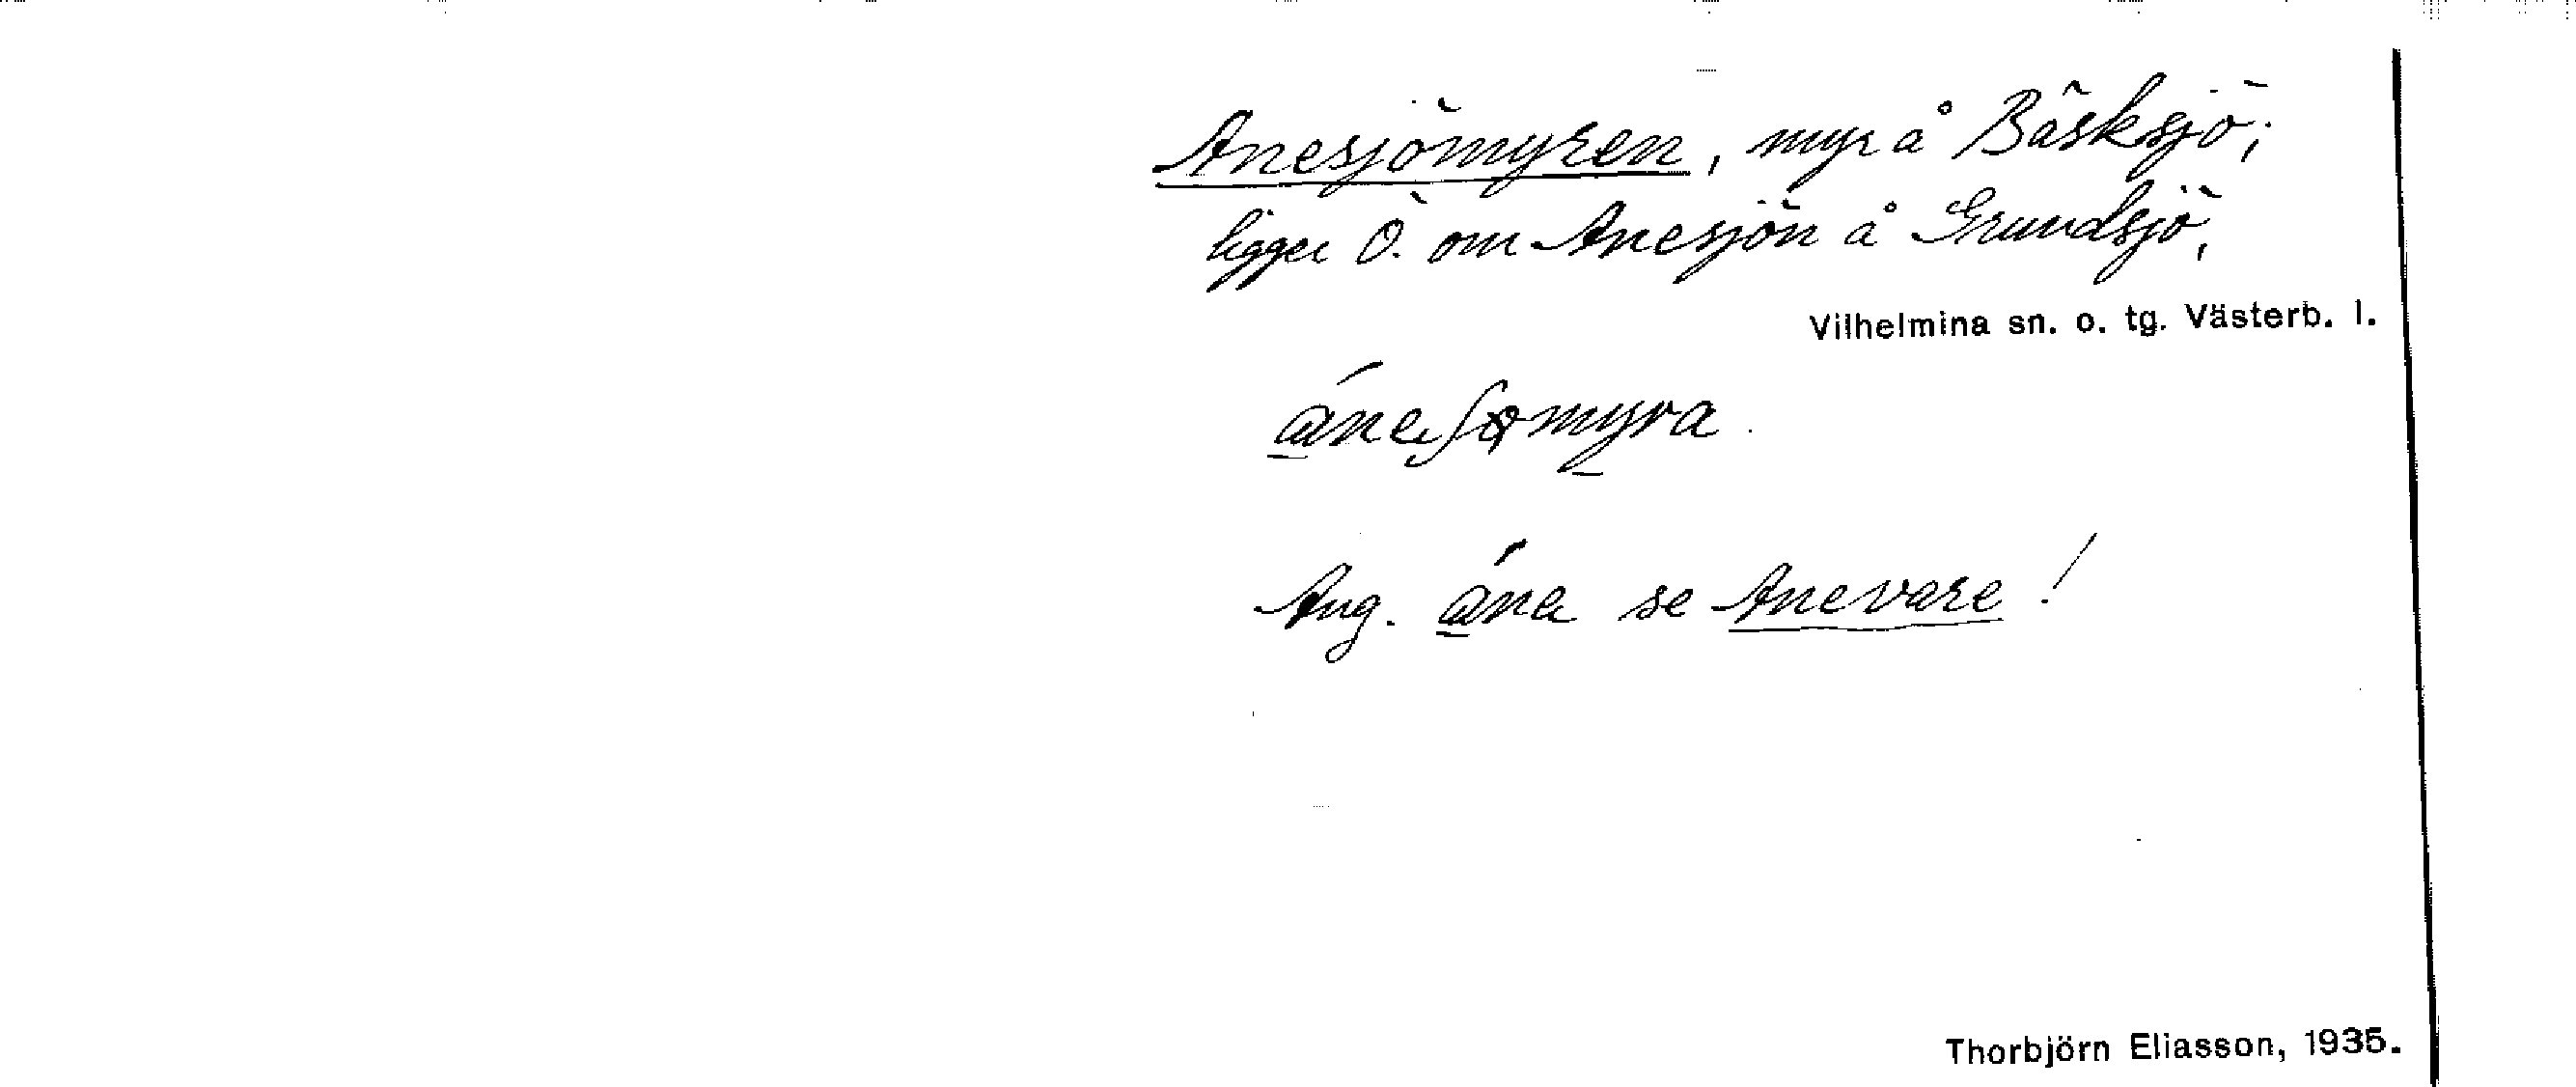 Anesjömyren, myr å Bäsksjö;
ligger Ö. om Anesjön å Grundsjö,
Vilhelmina sn. o. tg. Västerb. l.
Ang. se Anevare!
Thorbjörn Eliasson, 1935.